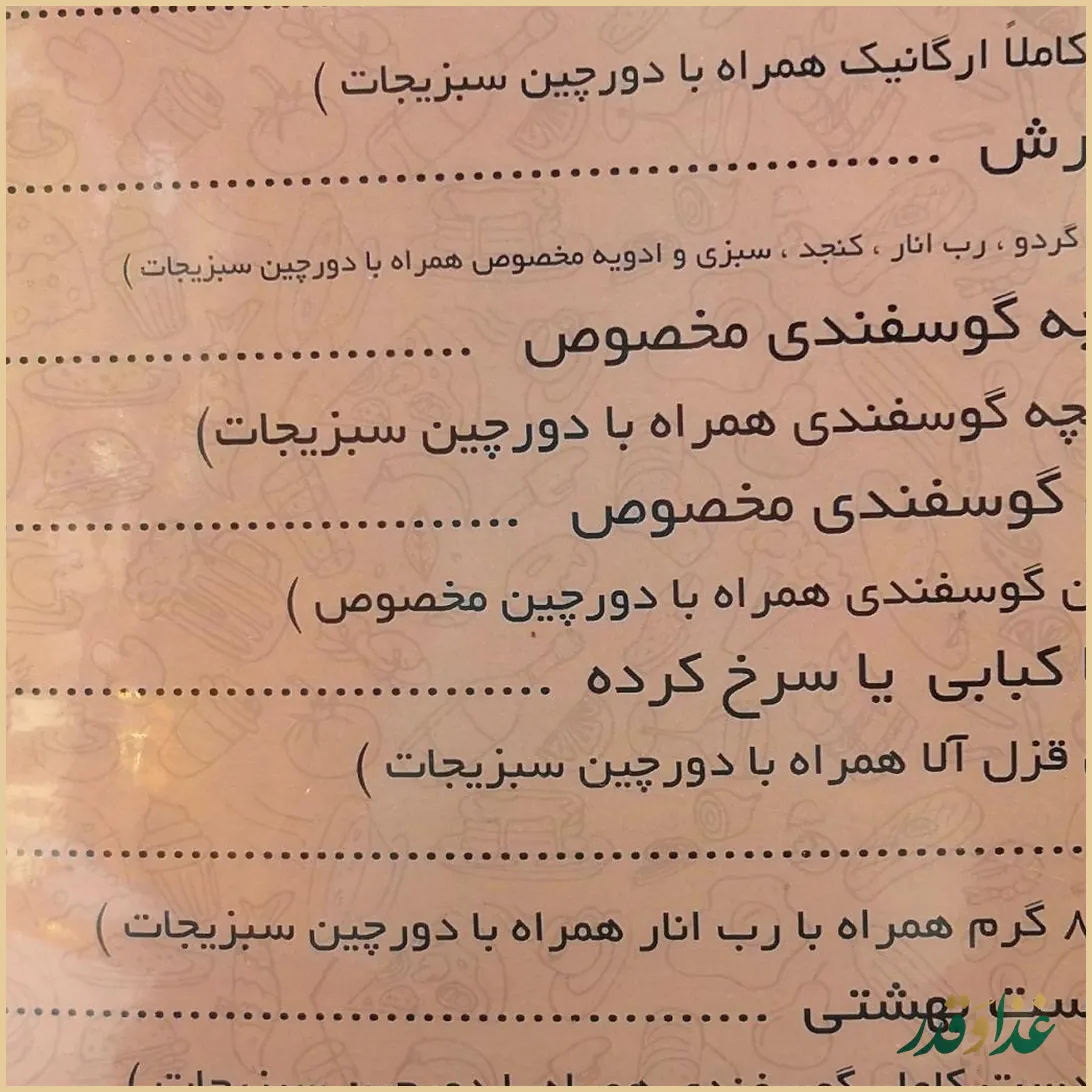 کاملاً ارگانیک همراه با دورچین سبزیجات )
رش ..........................................................
گردو ، رب انار ، کنجد ، سبزی و ادویه مخصوص همراه با دورچین سبزیجات )
یه گوسفندی مخصوص ...........................
چه گوسفندی همراه با دورچین سبزیجات)
گوسفندی مخصوص .............................
ن گوسفندی همراه با دورچین مخصوص )
ا کبابی یا سرخ کرده ...............................
قزل آلا همراه با دورچین سبزیجات )
۸ گرم همراه با رب انار همراه با دورچین سبزیجات )
ست بهشتی ...........................................
دست کامل گوسفندی همراه با دورچین سبزیجات )
غذا و قدر